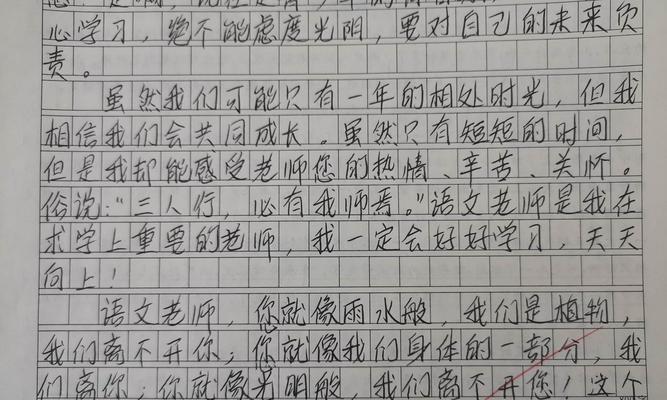 心学习，绝不能虑度光阴，要对自己的未来负
责。
虽然我们可能只有一年的相处时光，但我
相信我们会共同成长。虽然只有短短的时间，
但是我却能感受老师您的热情、辛苦、关怀。
俗说：“三人行，必有我师焉。”语文老师是我在
求学上重要的老师，我一定会好好学习，天天
向上！
语文老师，您就像雨水般，我们是植物，
我们离不开你；您就像我们身体的一部分，我
们离你；你就像光明般，我们离不开您！这个